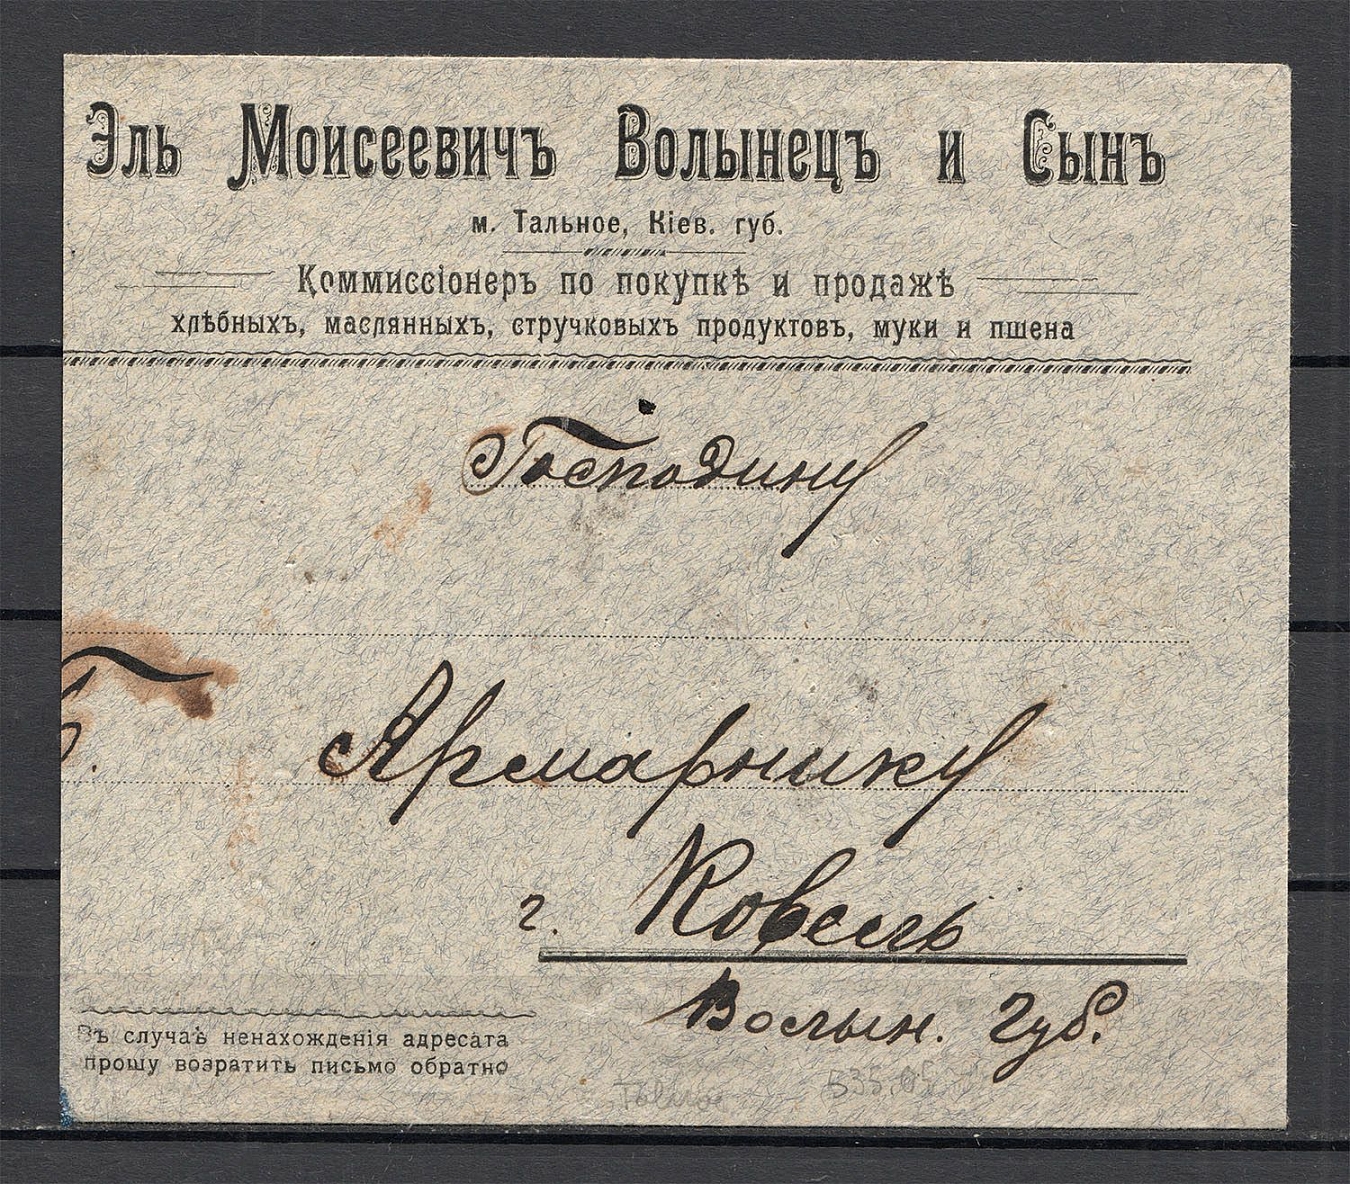 Эль Моисеевичъ Волынецъ и Сынъ
м. Тальное, Кіев. губ.
Коммиссіонеръ по покупкѣ и продажѣ
хлѣбныхъ, маслянныхъ, стручковыхъ продуктовъ, муки и пшена
Господину
Ярмарнику
г. Ковель
Волын. Губ.
Въ случаѣ ненахожденія адресата
прошу возратить письмо обратно